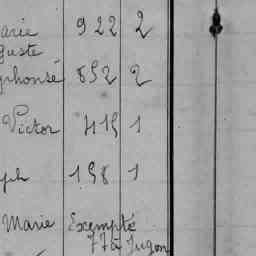 arie 922 2
guste
phonse 852 2
Victor 415 1
ph 158 1
Marie Exempté
77 à Jugon